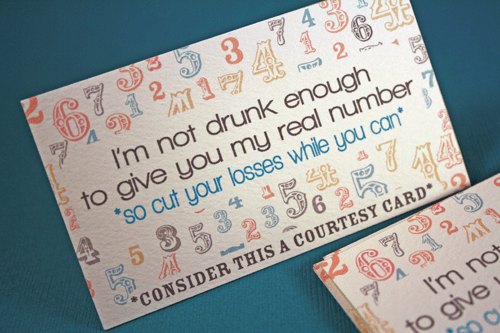 I'm not drunk enough
to give you my real number
*so cut your losses while you can*
*CONSIDER THIS A COURTESY CARD*
I'm not
to give you
*so c